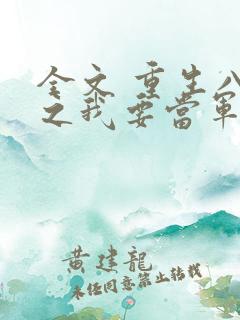 全文 重生八
之我要當軍
黄建龍
未经同意禁止转载